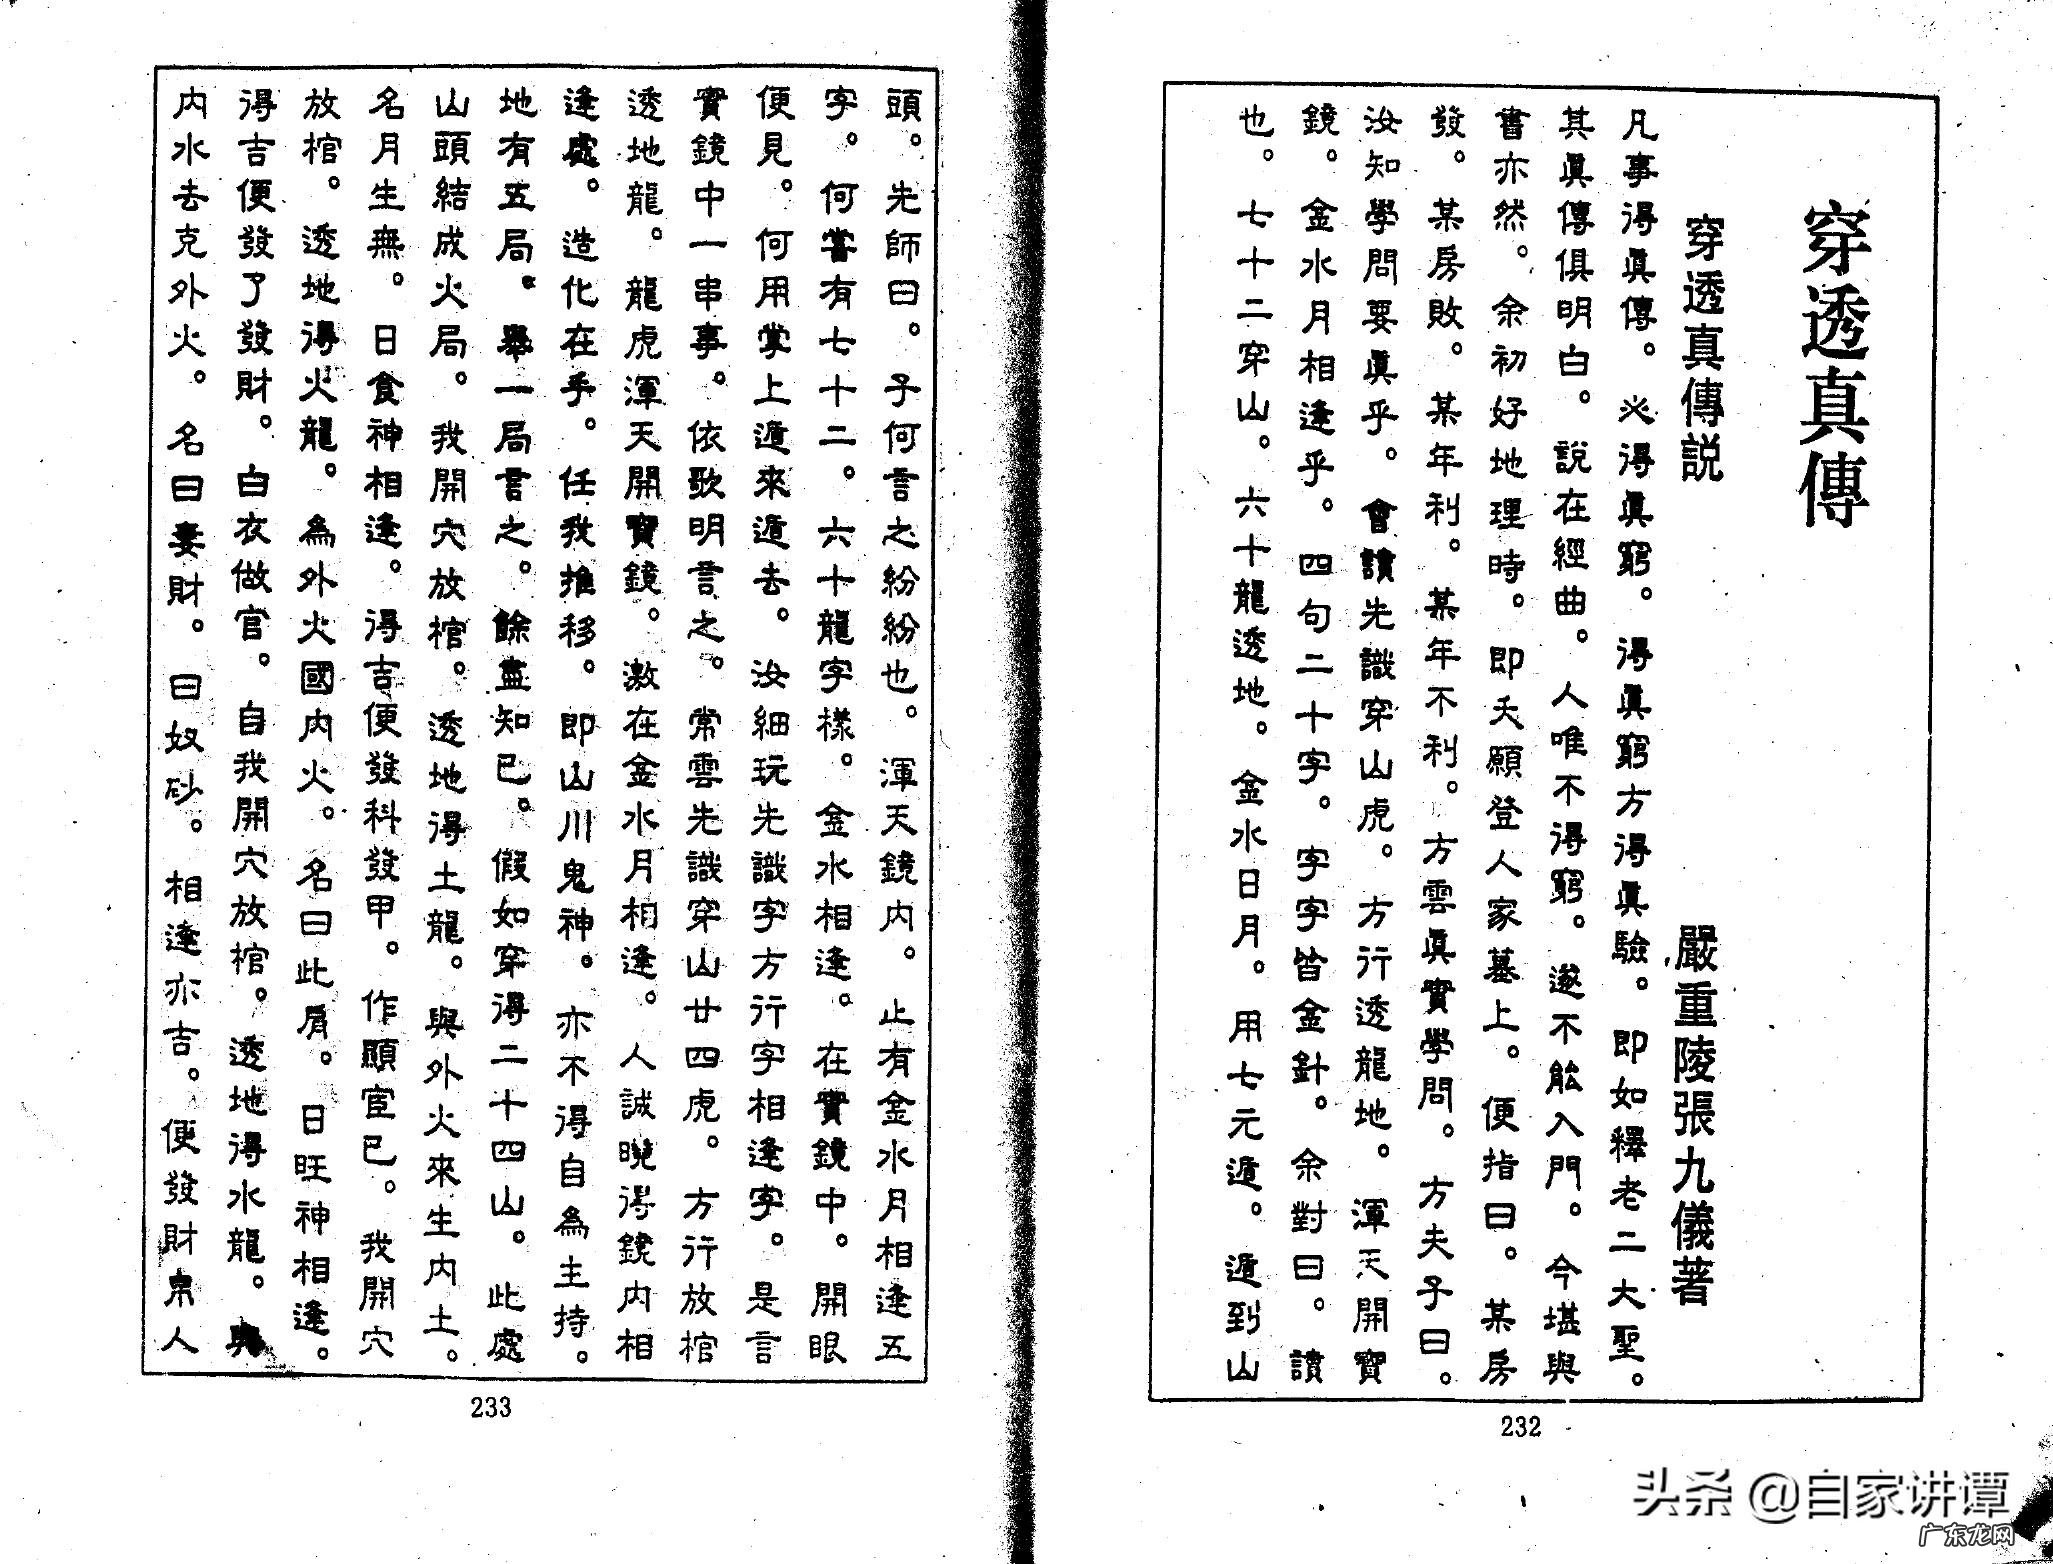 穿透真傳
穿透真傳說
嚴重陵張九儀著
凡事得眞傳。必得眞窮。得眞窮方得眞驗。即如釋老二大聖。
其眞傳俱明白。說在經曲。人唯不得窮。遂不能入門。今堪與
書亦然。余初好地理時。即夭願登人家墓上。便指曰。某房
發。某房敗。某年利。某年不利。方雲眞實學問。方夫子曰。
汝知學問要眞乎。會讀先識穿山虎。方行透龍地。渾天開寶
鏡。金水月相逢乎。四句二十字。字字皆金針。余對曰。讀
也。七十二穿山。六十龍透地。金水日月。用七元遁。遁到山
232
頭。先師曰。子何言之紛紛也。渾天鏡內。止有金水月相逢五
字。何嘗有七十二。六十龍字樣。金水相逢。在寶鏡中。開眼
便見。何用掌上遁來遁去。汝細玩先識字方行字相逢字。是言
寶鏡中一串事。依歌明言之。常雲先識穿山廿四虎。方行放棺
透地龍。龍虎渾天開寶鏡。激在金水月相逢。人誠曉得鏡內相
逢處。造化在手。任我推移。即山川鬼神。亦不得自為主持。
地有五局。舉一局言之。餘盡知已。假如穿得二十四山。此處
山頭結成火局。我開穴放棺。透地得土龍。與外火來生內土。
名月生無。日食神相逢。得吉便發科發甲。作顯宦已。我開穴
放棺。透地得火龍。為外火國內火。名曰此肩。日旺神相逢。
得吉便發了發財。白衣做官。自我開穴放棺。透地得水龍。與
內水去克外火。名曰妻財。曰奴砂。相逢亦吉。便發財帛人
233
头条 @自家讲谭
广东龙网